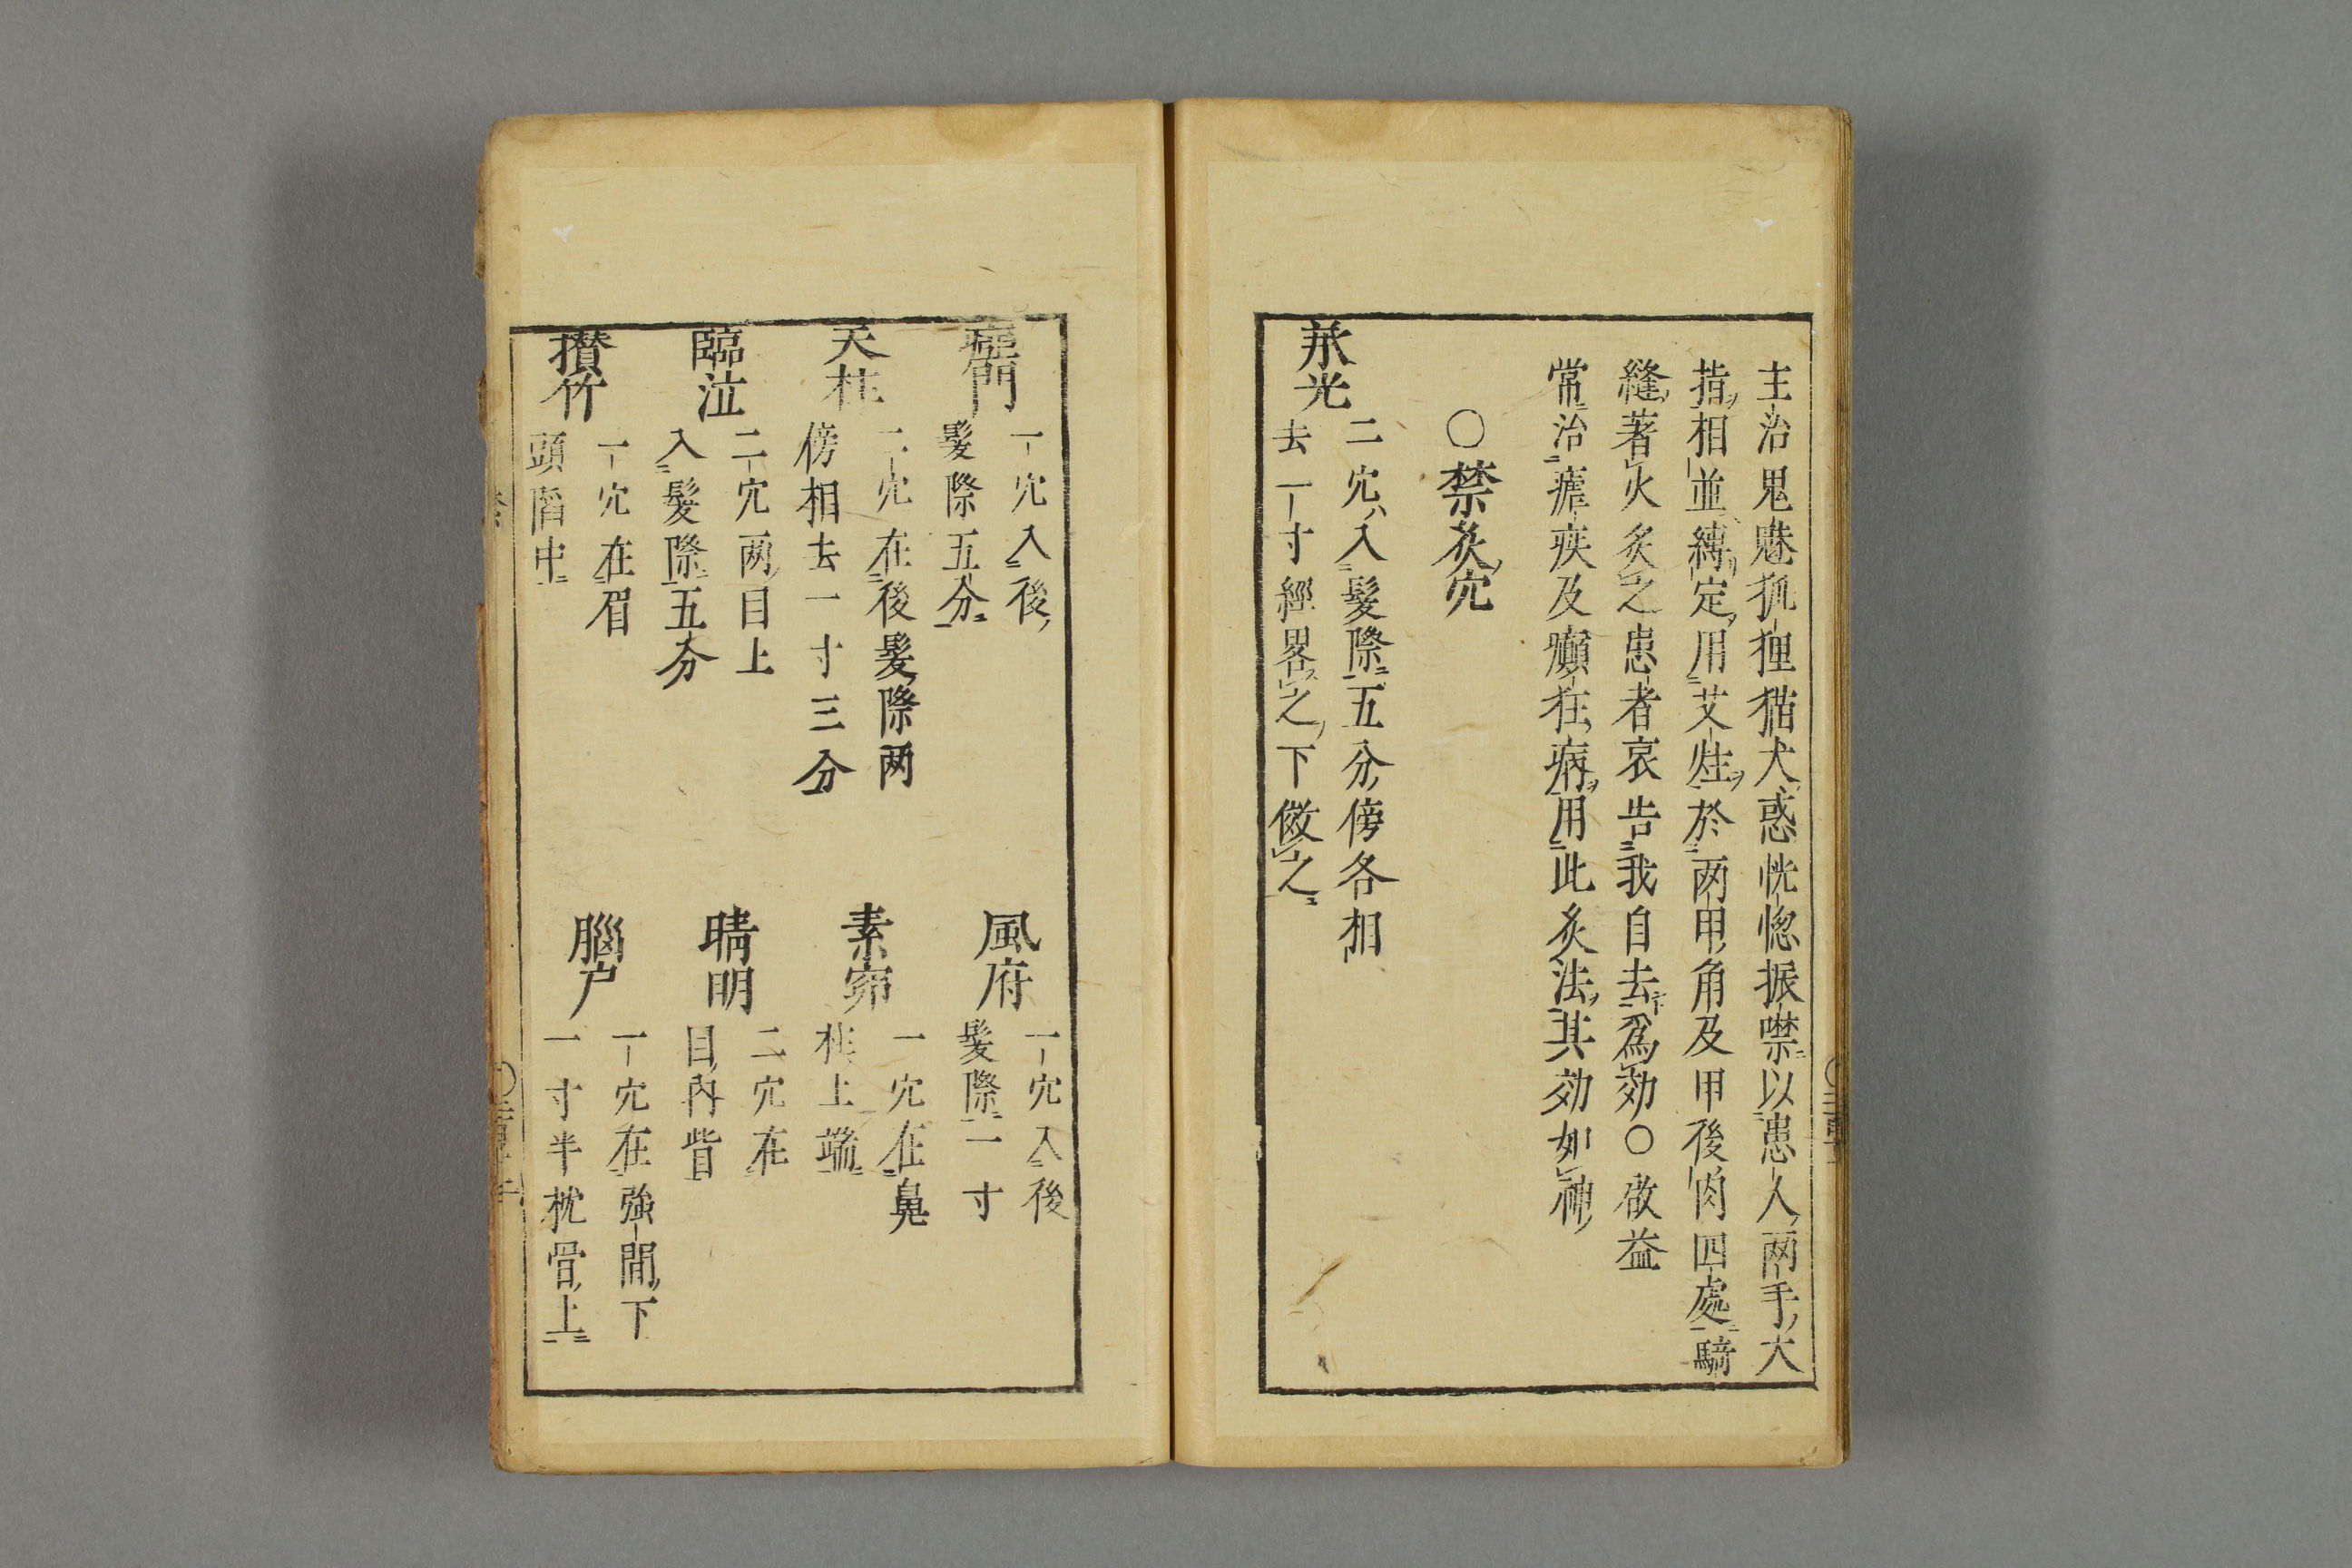 主治鬼魅狐狸猫犬惑恍惚振噤以患人兩手大
指相並縛定用艾炷於两甲角及甲後肉四處騎
縫著火炙之患者哀告我自去爲効〇啟益
常治瘧疾及癲狂病用此炙法其効如神
〇禁炙穴
承光
二穴入髮際五分傍各相
去一寸經畧之下倣之
瘂門
一穴入後
髮際五分
風府
一穴入後
髮際一寸
天柱
二穴在後髮際两
傍相去一寸三分
素窌
一穴在鼻
柱上端
臨泣
二穴两目上
入髮際五分
睛明
二穴在
目内眥
攅竹
一穴在眉
頭陷中
腦户
一穴在強間下
一寸半枕骨上